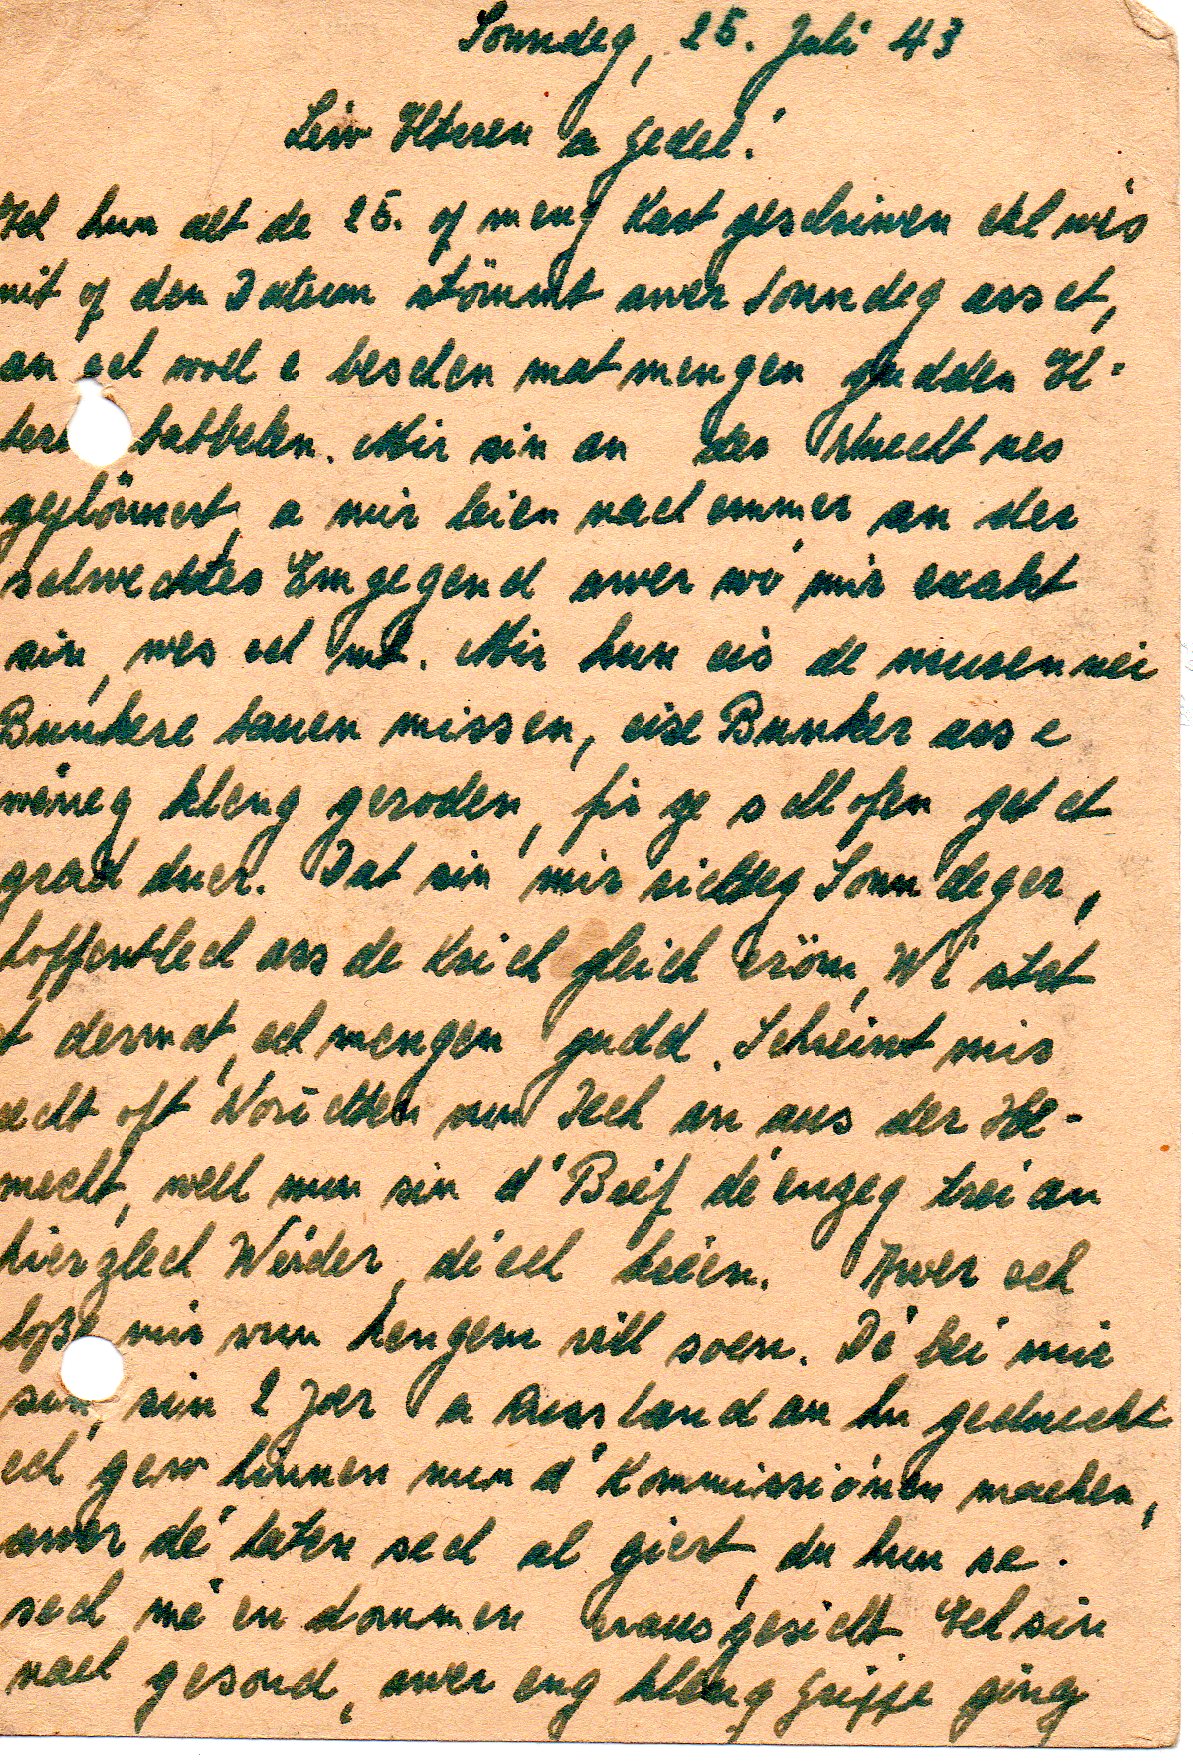 Sonndeg, 25. Juli 43
Leiw Elteren a Gedel!
Ech hun elt de 25. of meng Kart geschriwen ech wés
nit of den Datum stömmt awer Sonndeg ass et,
an ech woll e beschen mat mengen gudden El-
teren babbelen. Mir sin an der Nuecht nes
geplönnert, a mir leien nach emmer an der
schwechtes Emgegend awer wó mir exakt
sin, wes ech nit. Mir hun eis de muoren nei
Bunkere bauen missen, eise Bunker ass e
wéneg kleng geroden, fir ze schlofen get et
grad duer. Dat sin mir richteg Sonndeger,
hoffentlech ass de Krich gleich eröm, Wé stet
t dermat, ech mengen gudd. Schreiwt mir
echt oft Noriichten vun Iech an aus der He-
mecht, well nun sin d'Bréf dé enzeg trei an
hierzlech Wérder, dé ech héien. Awer ech
loße mir vun kengem vill soen. Dé bei mir
sin, sin 2 Joer a Russland an hu geduecht
ech gew hinnen nun d'Kommissiónen machen,
awer dé haten sech al giert, du hun se
sech mé en dommen erausgesicht. Ech sin
nach gesond, awer eng kleng Grippe géng